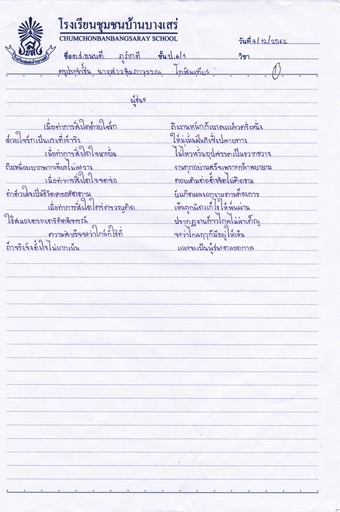 โรงเรียนชุมชนบ้านบางเสร่
CHUMCHONBANBANGSARAY SCHOOL
วันที่ 9/12/2562
ชื่อ ด.ช.ธนนดี ภูภักดี ชั้น ป.๑/๑ วิชา
ครูประจำชั้น นางสาว
ผู้ชนะ
เมื่อทำการสิ่งใดด้วยใจรัก ถึงงานหนักก็เบาลงแล้วครึ่งหนึ่ง
ด้วยใจรักเป็นแรงที่เร้ารึง ให้มุ่งมั่นฝันถึงซึ่งปลายทาง
เมื่อทำการสิ่งใดใจบากบั่น ไม่ไหวหวั่นอุปสรรคเป็นขวากขวาง
ถึงเหนื่อยยากพากเพียรไม่ละวาง งานทุกอย่างเสร็จเพราะกล้าพยายาม
เมื่อทำการสิ่งใดใจจดจ่อ คอยเติมต่อตั้งจิตไม่คิดขาม
ทำด้วยใจเป็นชีวิตคอยติดตาม บังเกิดผลงอกงามตามต้องการ
เมื่อทำการสิ่งใดใคร่ครวญคิด เห็นถูกผิดแก้ไขให้พ้นผ่าน
ใช้สมองตรองตรึกคิดพิจารณ์ ปรากฏงานก้าวไกลไม่ลำเค็ญ
ความสำเร็จจะว่าใกล้ก็ใช่ที่ จะว่าไกลฤๅก็มีอยู่ให้เห็น
ถ้าจริงจังตั้งใจไม่ยากเย็น และจะเป็นผู้ชนะตลอดกาล